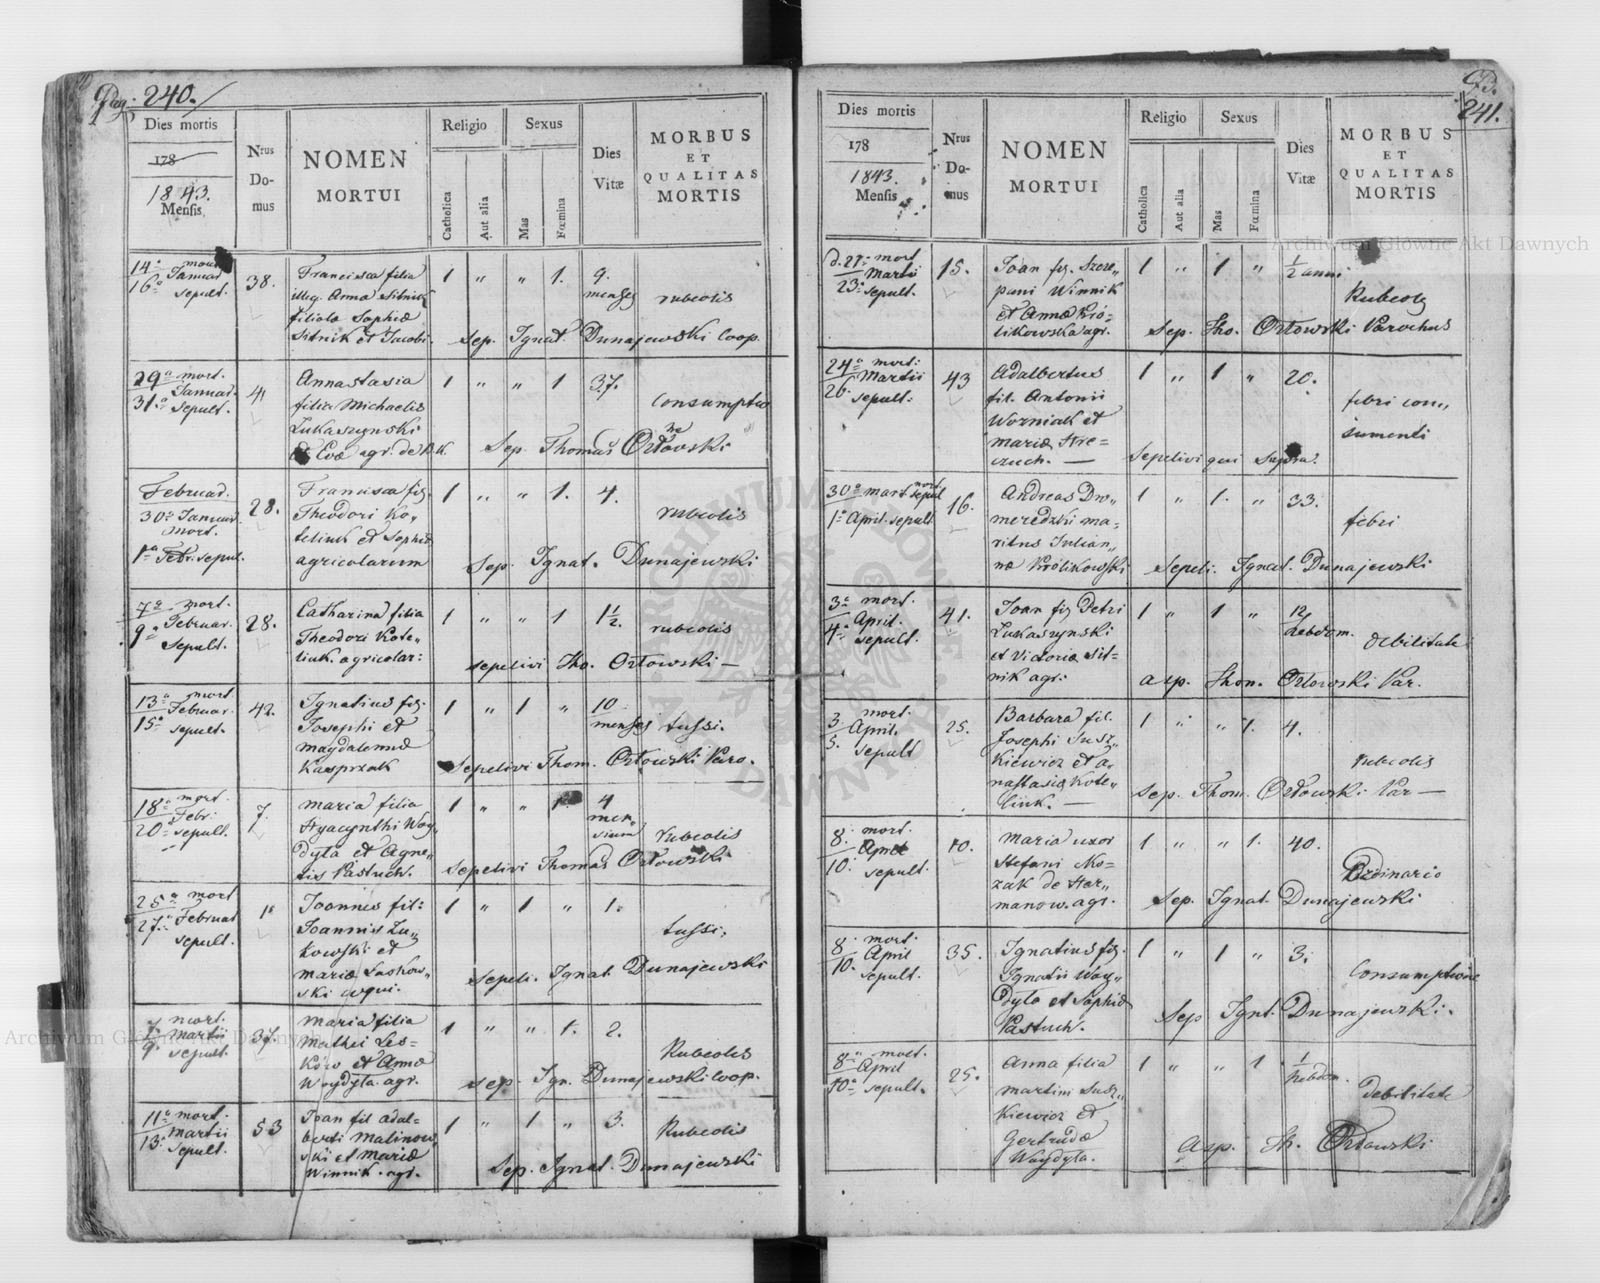 Pag. 240.
Dies mortis
178
1843.
Mensis
Nrus
Do-
mus
NOMEN
MORTUI
Religio
Catholica
Aut alia
Sexus
Mas
Fœmina
Dies
Vitæ
MORBUS
ET
QUALITAS
MORTIS
14a mort.
Januar.
16a sepult.
38.
Francisca filia
illeg. Anna Sitnik
filiola Sophiæ
Sitnik et Jacobi.
1 " " 1. 9.
menses
rubeolis
Sep. Ignat. Dunajewski Coop.
29a mort.
Januar.
31a sepult.
4
Annastasia
filia Michaelis
Lukaszynski
et Evæ agr. de
1 " " 1 37.
Consumptio
Sep. Thomas Orłowski
Februar.
30a Januar.
mort.
1a Febr. sepul.
28.
Francisca fil.
Theodori Ko-
teliuk et Sophiæ
agricolarum
1 " " 1. 4.
rubeolis
Sep. Ignat. Dunajewski
7a mort.
Februar.
9a sepult.
28.
Catharina filia
Theodori Kote-
liuk. agricolar:
1 " " 1 1½.
rubeolis
sepelivi Tho. Orłowski —
13a mort
Februar.
15a sepult.
42.
Ignatius fil.
Josephi et
Magdalenæ
Kasprzak
1 " 1 " 10
menses
tussi.
Sepelivi Thom. Orłowski Paro.
18a mort.
Febr:
20a sepult.
7.
Maria filia
Hyacynthi Woy-
dyła et Agne-
tis Pastuch.
1 " " 1. 4
men-
sium
rubeolis
Sepelivi Thomas Orłowski
25a mort
27a Februar
sepult.
1.
Joannes fil:
Joannis Łu-
kowski et
Mariæ Laskow-
ski
1 " 1 " 1.
tussi.
Sepeli. Ignat. Dunajewski
7. mort.
Martii
9. sepult.
37.
Maria filia
Mathei Les-
ków et Annæ
Woydyła. agr.
1 " " 1. 2.
Rubeolis
sep. Ign. Dunajewski Coop.
11a mort.
Martii
13a sepult.
53
Joan fil Adal-
berti Malinow-
ski et Mariæ
Winnik. agr.
1 " 1 " 3.
Rubeolis
Sep. Ignat. Dunajewski
241.
Dies mortis
178
1843.
Mensis
Nrus
Do-
mus
NOMEN
MORTUI
Religio
Catholica
Aut alia
Sexus
Mas
Fœmina
Dies
Vitæ
MORBUS
ET
QUALITAS
MORTIS
d. 21. mort
Martii
23a sepult.
15.
Joan fil. Szcze-
pani Winnik
et Annæ Kró-
likowska agr.
1 " 1 " ½ anni
Rubeolis
Sep. Tho. Orłowski Parochus
24a mort:
Martii
26. sepult:
43
Adalbertus
fil. Antonii
Worniak et
Mariæ Stre-
czuch. —
1 " 1 " 20.
febri con-
sumenti
Sepelivi qui supra.
30a mart. mort
1a April. sepult
16.
Andreas Dro-
meredzki ma-
ritus Julian-
næ Królikowski
1 " 1. " 33.
febri
Sepeli. Ignat. Dunajewski
3a mort.
April.
4a sepult.
41.
Joan fil Petri
Lukaszynski
et Victoriæ Sit-
nik agr:
1 " 1 " 12
hebdom.
debilitate
asp. Thom. Orłowski Par.
3. mort.
April.
5. sepult
25.
Barbara fil.
Josephi Susz-
kiewicz et A-
nastasiæ Kote-
liuk. —
1 " " 1. 4.
rubeolis
Sep. Thom. Orłowski Par —
8. mort.
April
10. sepult.
10.
Maria uxor
Stefani No-
zak de Her-
manow. agr.
1 " " 1. 40.
Ordinario
Sep. Ignat. Dunajewski
8. mort.
April
10. sepult.
35.
Ignatius fil.
Ignatii Woy-
dyła et Sophiæ
Pastuch.
1 " 1 " 3.
Consumptione
Sep Ignt. Dunajewski.
8a mort.
April
10a sepult.
25.
Anna filia
Martini Susz-
kiewicz et
Gertrudæ
Woydyła.
1 " " 1 1
hebdom.
debilitate
asp. Th. Orłowski
Archiwum Główne Akt Dawnych
Archiwum Główne Akt Dawnych
ARCHIWUM GŁÓWNE AKT DAWNYCH